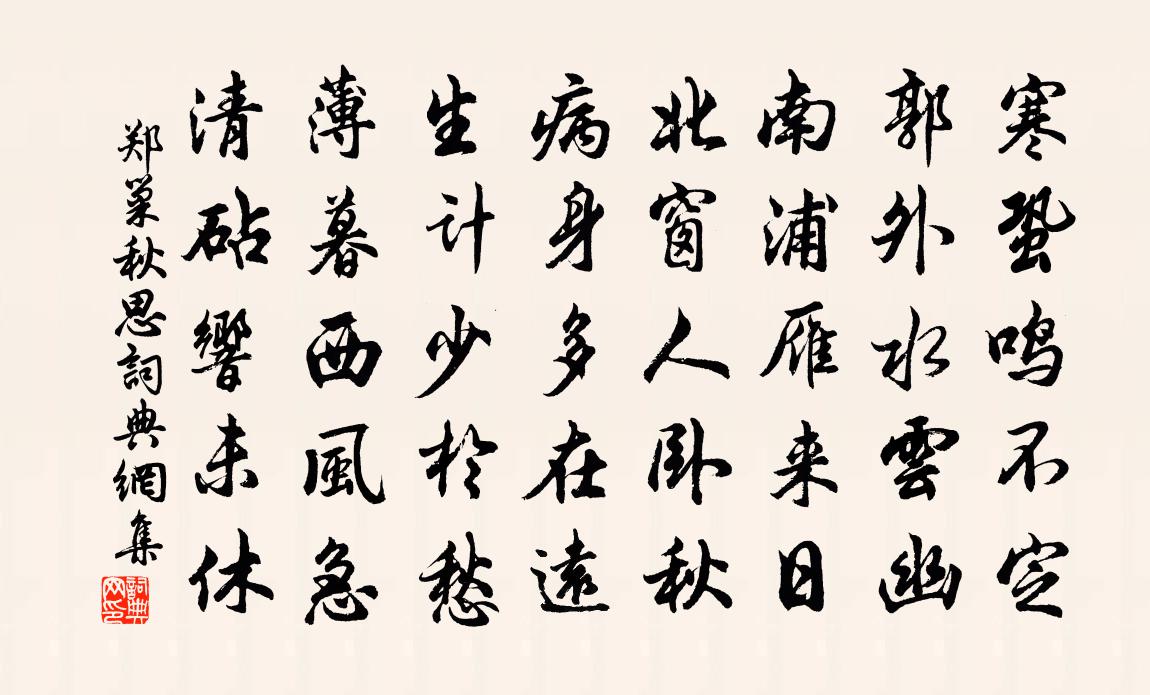 寒蛩鸣不定
郭外水雲幽
南浦雁来日
北窗人卧秋
病身多在遠
生计少於愁
薄暮西風急
清砧響未休
郑巢秋思詞典網集
詞典网印